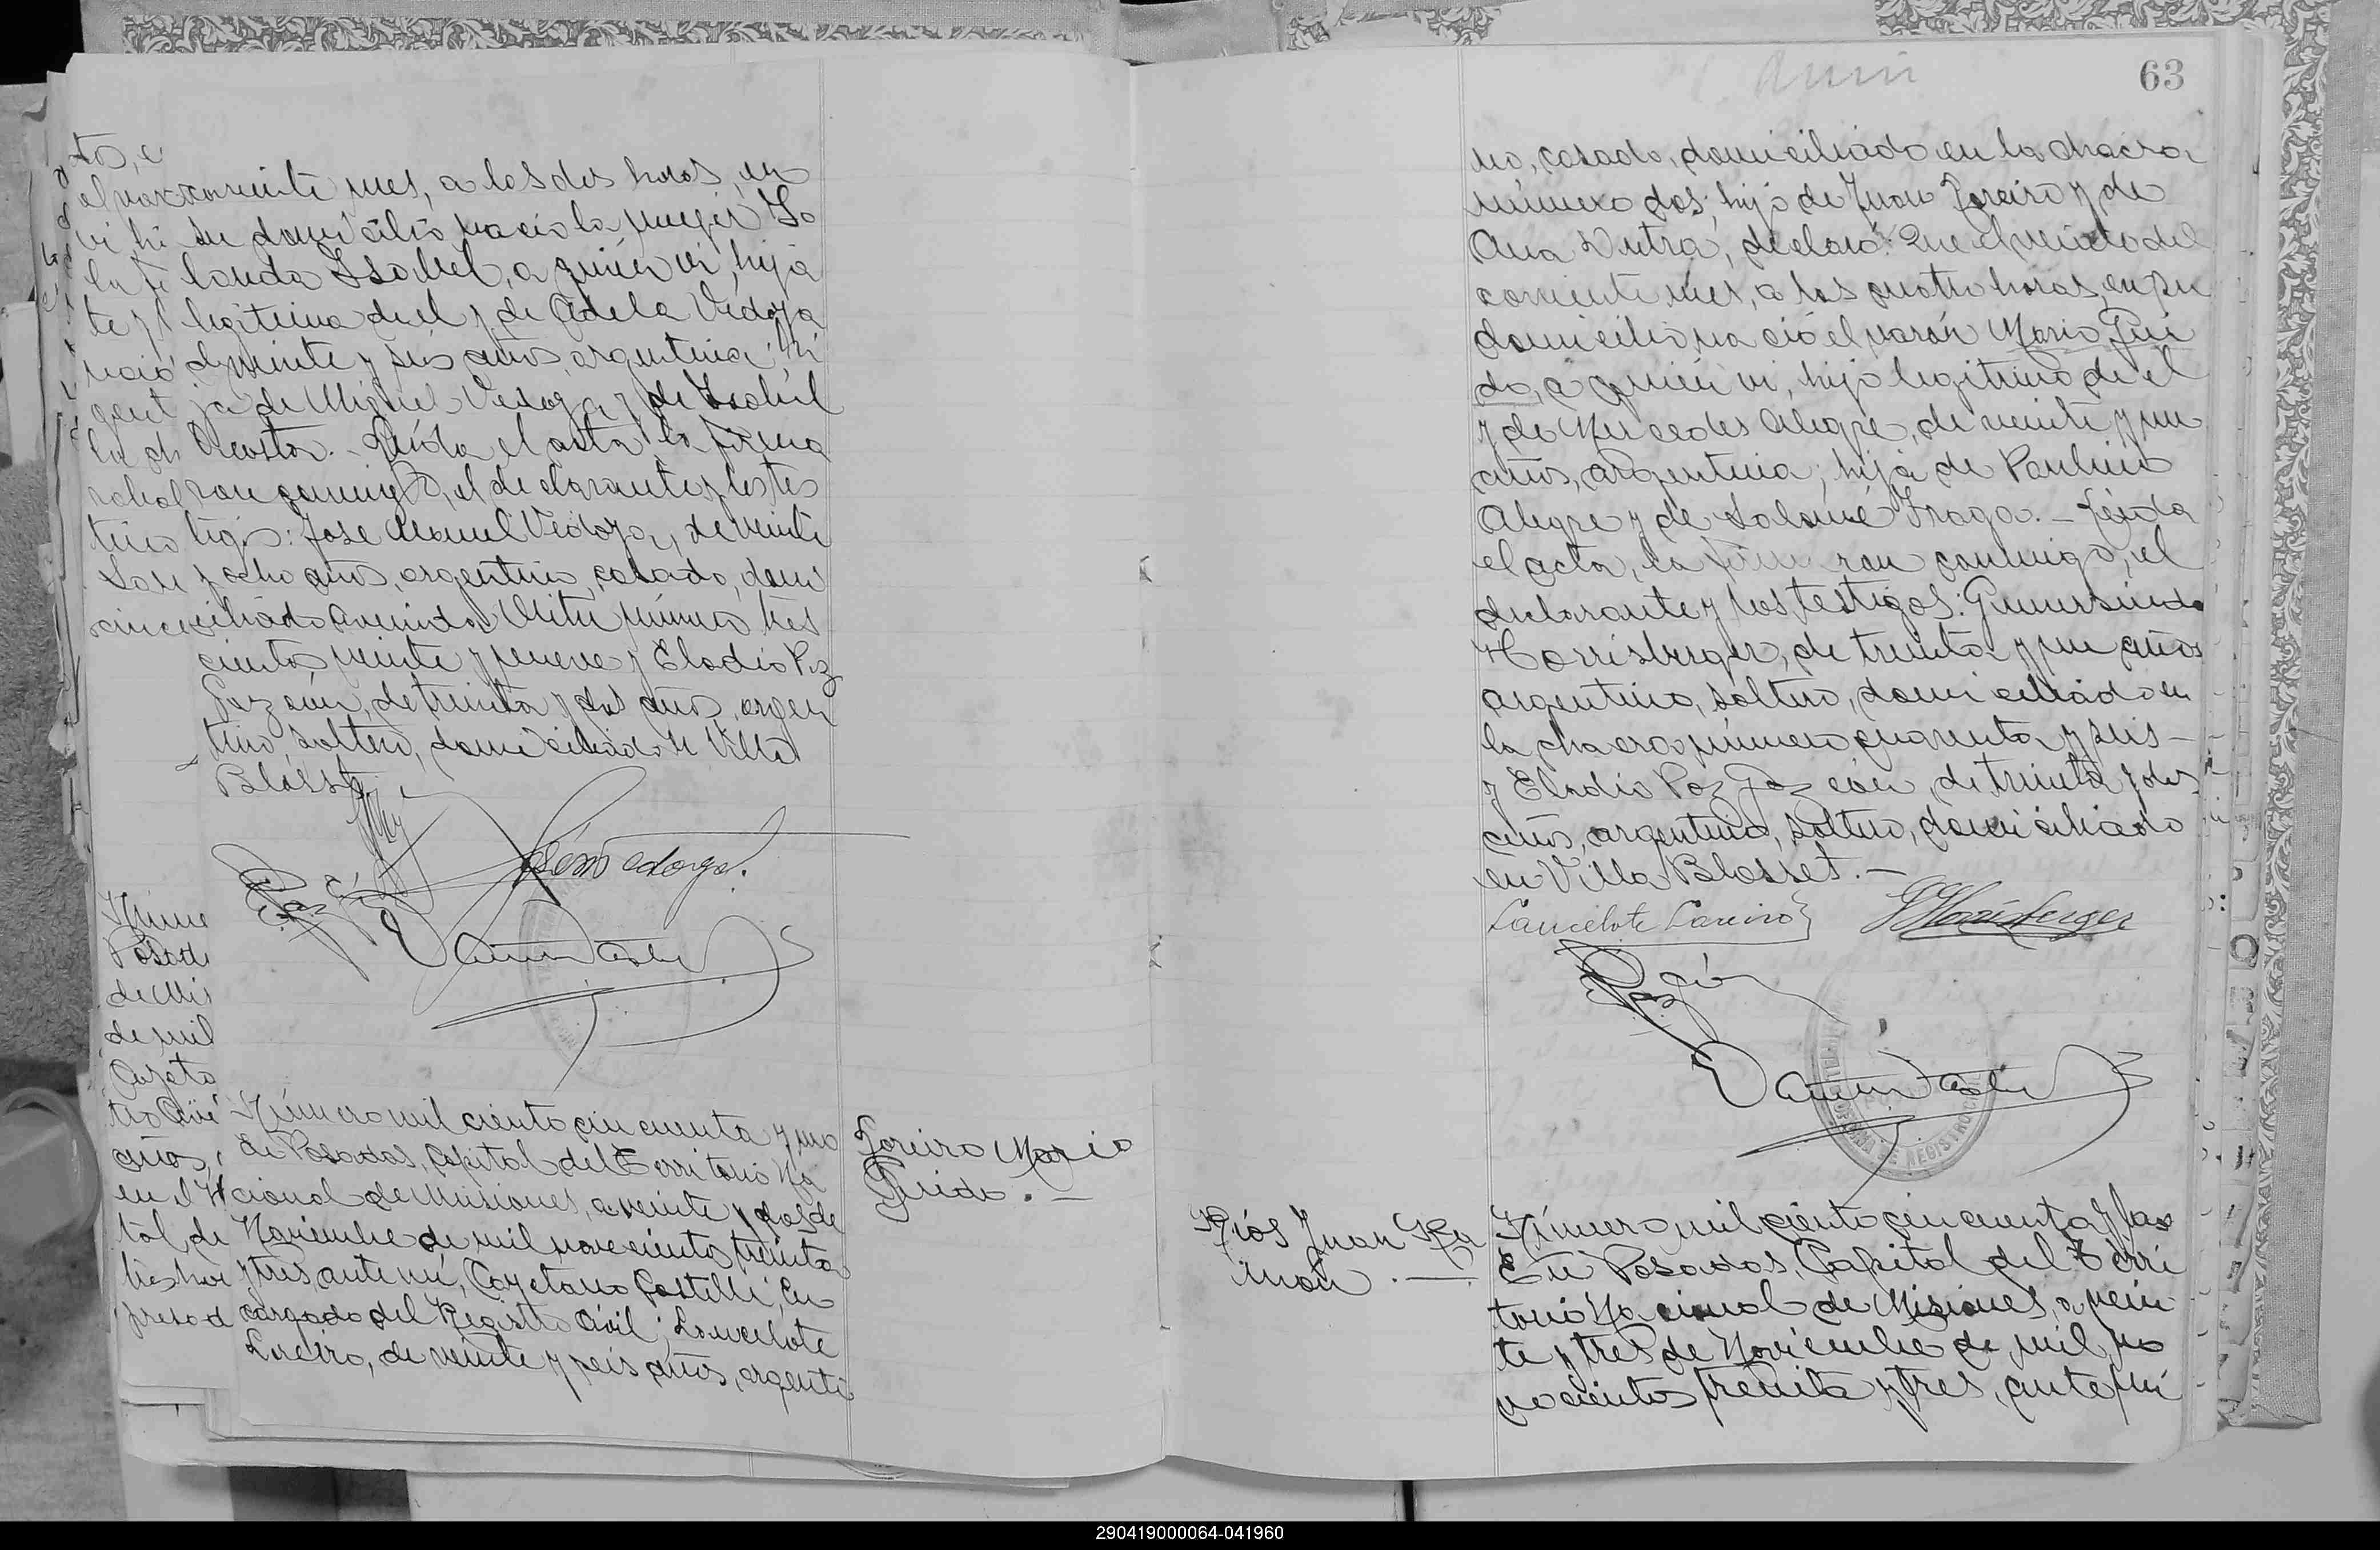 corriente mes, a las dos horas, en
su domicilio nació la mujer Yo
landa Isabel, a quién ví, hija
legitima de el y de Adela Vedoya
de veinte y seis años, argentina, hi
ja de Miguel Vedoya y de Isabel
Acosta.- Leída el acta, la firma
ron conmigo, el declarante y los tes
tigos: José Manuel Vedoya, de veinte
y ocho años, argentino, casado, domi
ciliado Avenida Mitre número tres
cientos veinte y nueve y Eladio Paz
Garzón, de treinta y dos años, argen
tino, soltero, domiciliado en Villa
Blosset
Número mil ciento cincuenta y uno
En Posadas, Capital del Territorio Na
cional de Misiones, a veinte y dos de
Noviembre de mil novecientos treinta
y tres, ante mí, Cayetano Castelli, En
cargado del Registro Civil; Lancelote
Loreiro, de veinte y seis años, argenti
Loreiro Mario
Guido.-
63
no, casado, domiciliado en la chacra
número dos; hijo de Juan Loreiro y de
Ana Dutra, declaró: Que el veinte del
corriente mes, a las cuatro horas, en su
domicilio nació el varón Mario Gui
do, a quién ví, hijo legitimo de el
y de Mercedes Alegre, de veinte y un
años, argentina; hija de Paulino
Alegre y de Salomé Fraga.- Leída
el acta, la firmaron conmigo, el
declarante y los testigos: Gumersindo
Horrisberger, de treinta y un años
argentino, soltero, domiciliado en
la chacra número cuarenta y seis-
y Eladio Paz Garzón, de treinta y dos
años, argentino, soltero, domiciliado
en Villa Blosset.-
Lancelote Lareiro
GHorrisberger
Ríos Juan Ra
món.-
Número mil ciento cincuenta y dos
En Posadas, Capital del Terri
torio Nacional de Misiones, a vein
te y tres de Noviembre de mil no
vecientos treinta y tres, ante mí
290419000064-041960